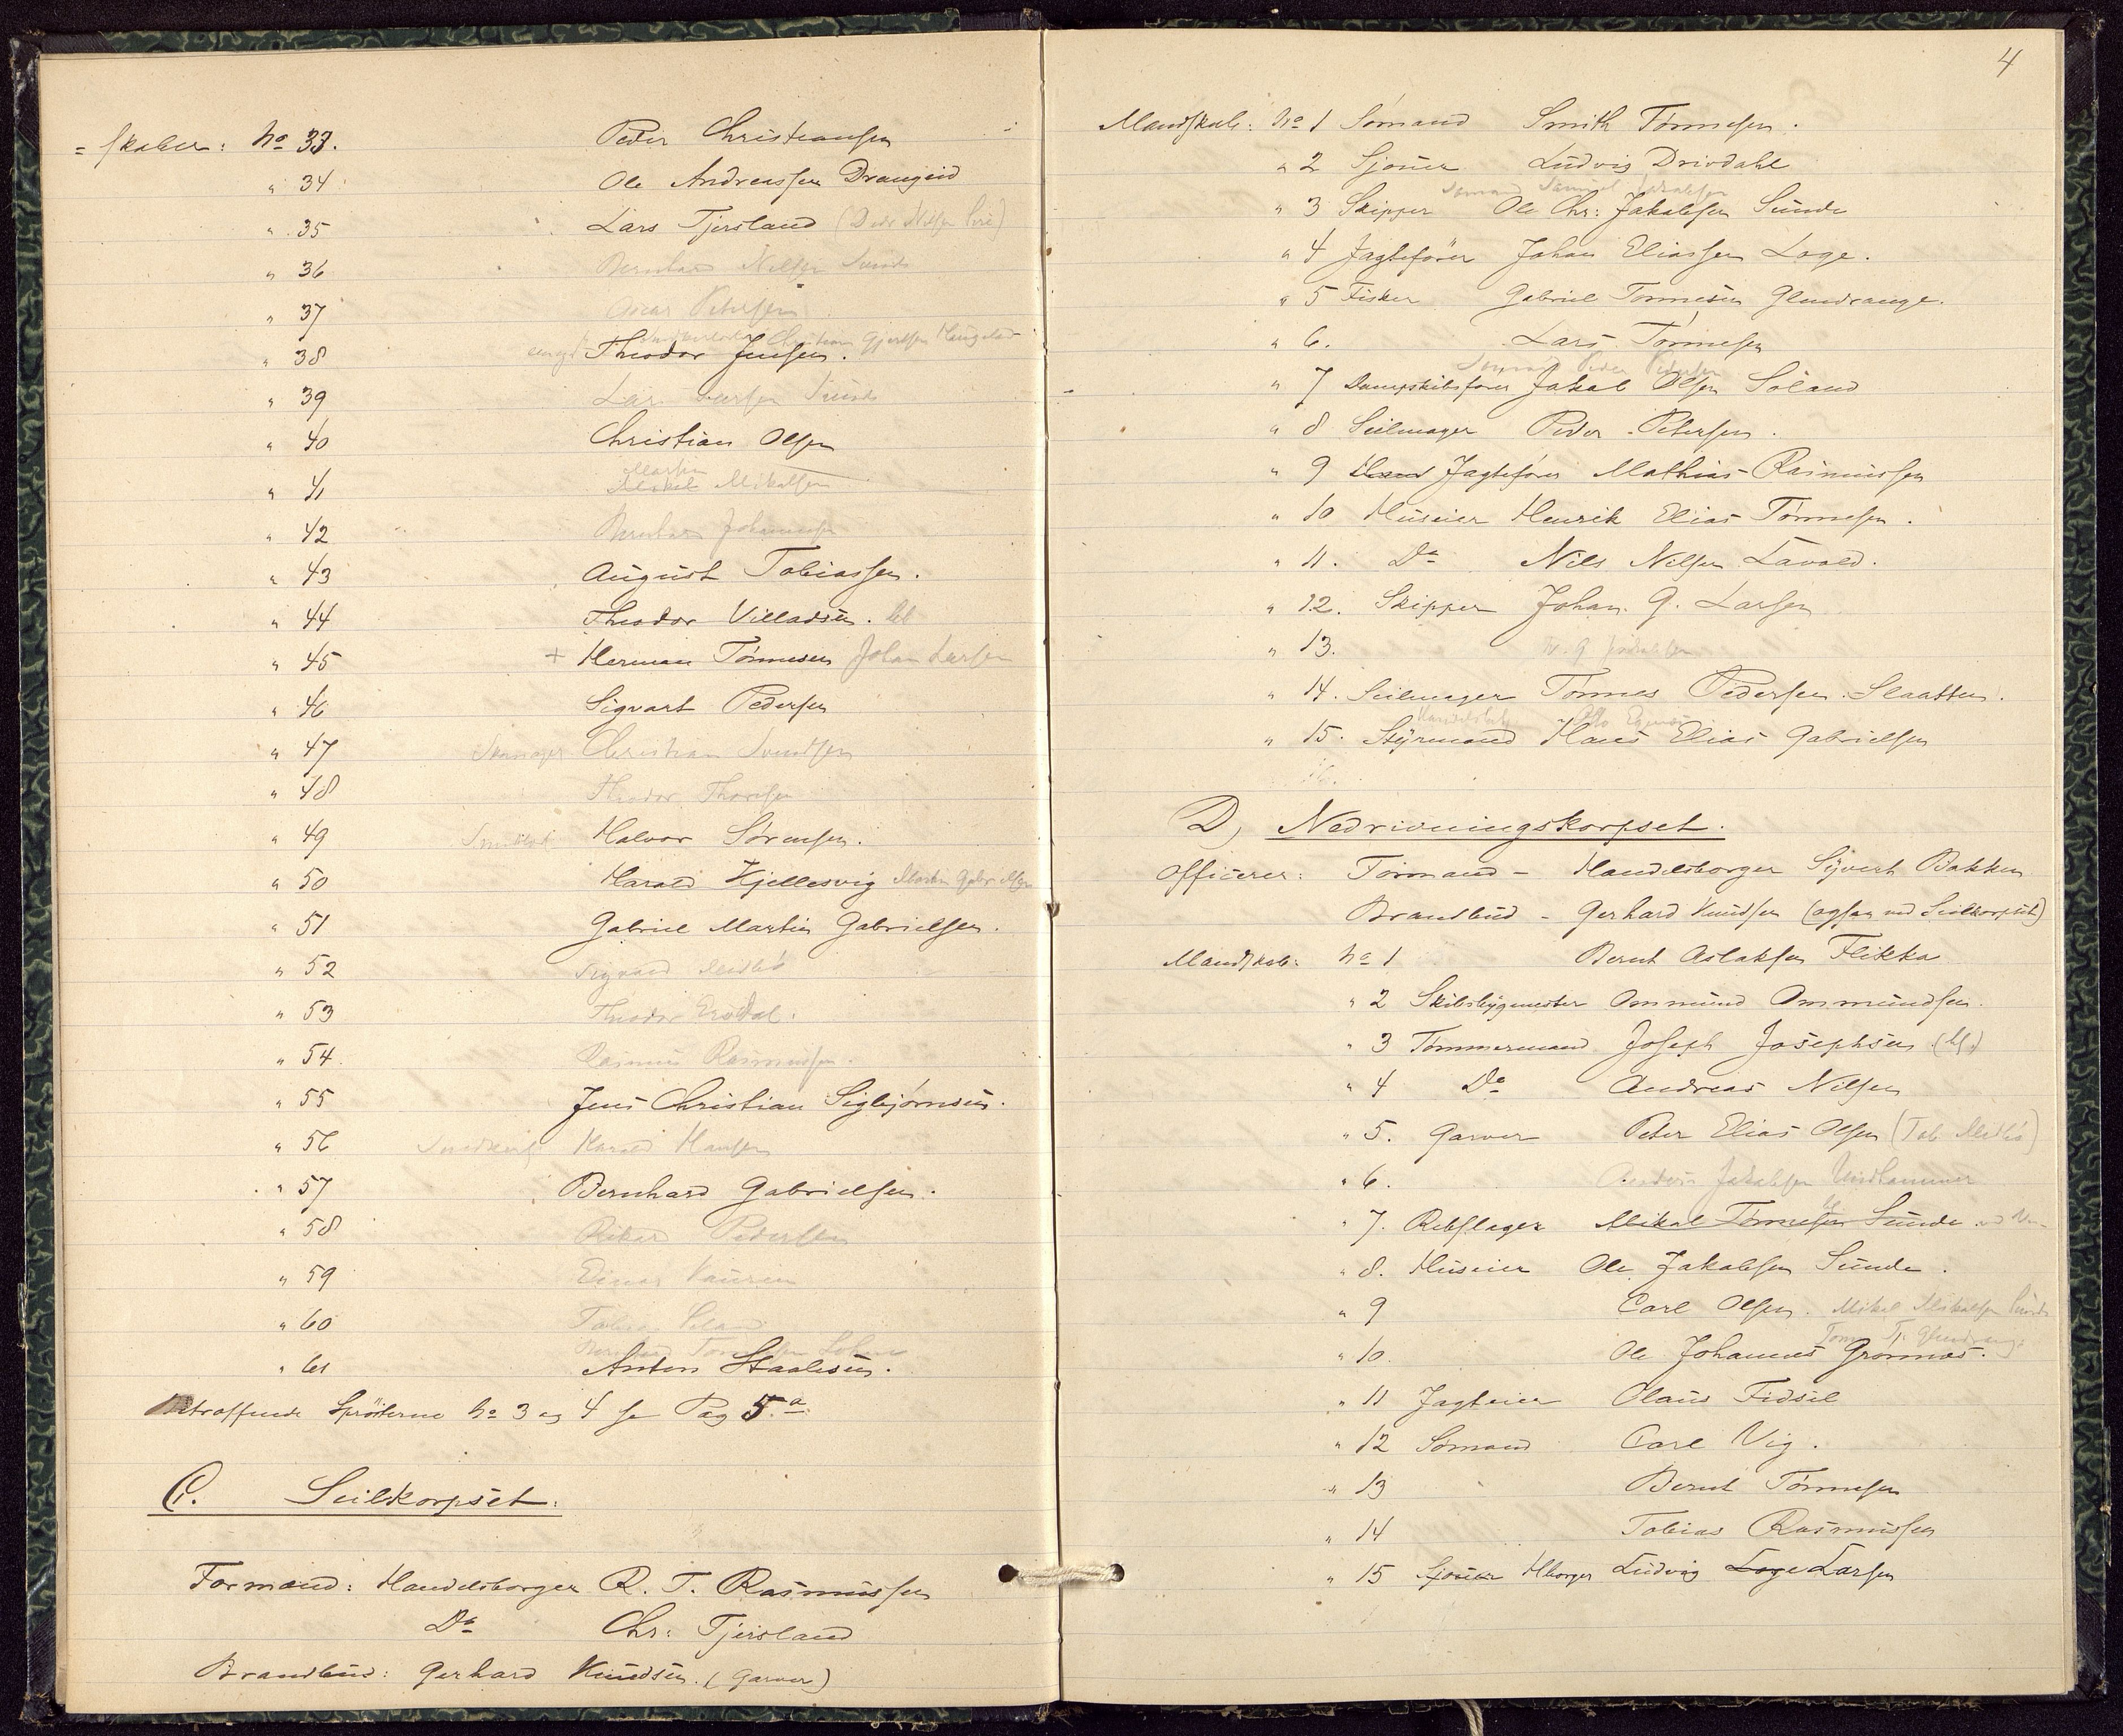 = skaber: No 33. Peder Christiansen
" 34 Ole Andreassen Drangeid
" 35 Lars Tjersland (Peder Nilsen )
" 36 Bernhard Nilsen Sunde
" 37 Oscar Petersen
Christian Gjertsen
" 38 Theodor Jensen.
" 39 Lars Larsen Sunde
" 40 Christian Olsen
Martin
" 41 Mikal Mikalsen
" 42 Bernhard Johannesen
" 43 August Tobiassen.
" 44 Theodor Villadsen.
" 45 + Herman Tönnesen Johan Larsen
" 46 Sigvart Pedersen
" 47 Christian Svendsen
" 48 Theodor Thorsen
" 49 Halvor Sörensen.
" 50 Harald Kjellesvig Martin Gabrielsen
" 51 Gabriel Martin Gabrielsen.
" 52 Sigvard
" 53 Theodor
" 54. Rasmus Rasmussen.
" 55 Jens Christian Sigbjörnsen.
" 56 Harald Hansen
" 57 Bernhard Gabrielsen.
" 58 Rikard Pedersen
" 59 Einar
" 60 Tobias
" 61 Anton Staalesen.
Betræffende Spröiterne No 3 og 4 se Pag 5.a
C. Seilkorpset.
Formænd: Handelsborger R. T. Rasmussen
Do Chr: Tjersland
Brandbud: Gerhard Knudsen. (Garver)
4
Mandskab: No 1 Sömand Smith Tönnesen.
" 2 Sjouer Ludvig Drivdahl
Sömand Samuel Jakobsen
" 3 Skipper Ole Chr: Jakobsen Sunde
" 4 Jagtefører Johan Eliassen Loge.
" 5 Fisker Gabriel Tönnesen Glendrange.
" 6. Lars Tönnesen
Sömand Peder Pedersen
" 7 Dampskibsfører Jakob Olsen Söland
" 8 Seilmager Peder Petersen.
" 9 Jagtefører Mathias Rasmussen
" 10 Huseier Henrik Elias Tönnesen.
" 11. Do Nils Nilsen Lavold.
" 12. Skipper Johan G. Larsen
" 13.
" 14. Seilmager Tönnes Pedersen Slaatten.
Otto
" 15. Styrmand Hans Elias Gabrielsen
16.
D) Nedrivningskorpset.
Officerer: Formand - Handelsborger Syvert Bakken
Brandbud - Gerhard Knudsen (ogsaa ved Seilkorpset)
Mandskab: No 1 Bernt Aslaksen Flikka
" 2 Skibsbygmester Ommund Ommundsen.
" 3 Tömmermand Joseph Josephsen
" 4 Do Andreas Nilsen
" 5. Garver Peter Elias Olsen
" 6. Anders Jakobsen Undhammer
" 7. Rebslager Mikal Tönnesen Sunde
" 8. Huseier Ole Jakobsen Sunde.
" 9 Carl Olsen. Mikal Mikalsen Sunde
" 10. Ole Johannes Grönnæs.
" 11 Jagteeier Olaus Fidsel
" 12 Sömand Carl Vig.
" 13 Bernt Tönnesen
" 14 Tobias Rasmussen
" 15 Sjouer Hborger Ludvig Loge Larsen